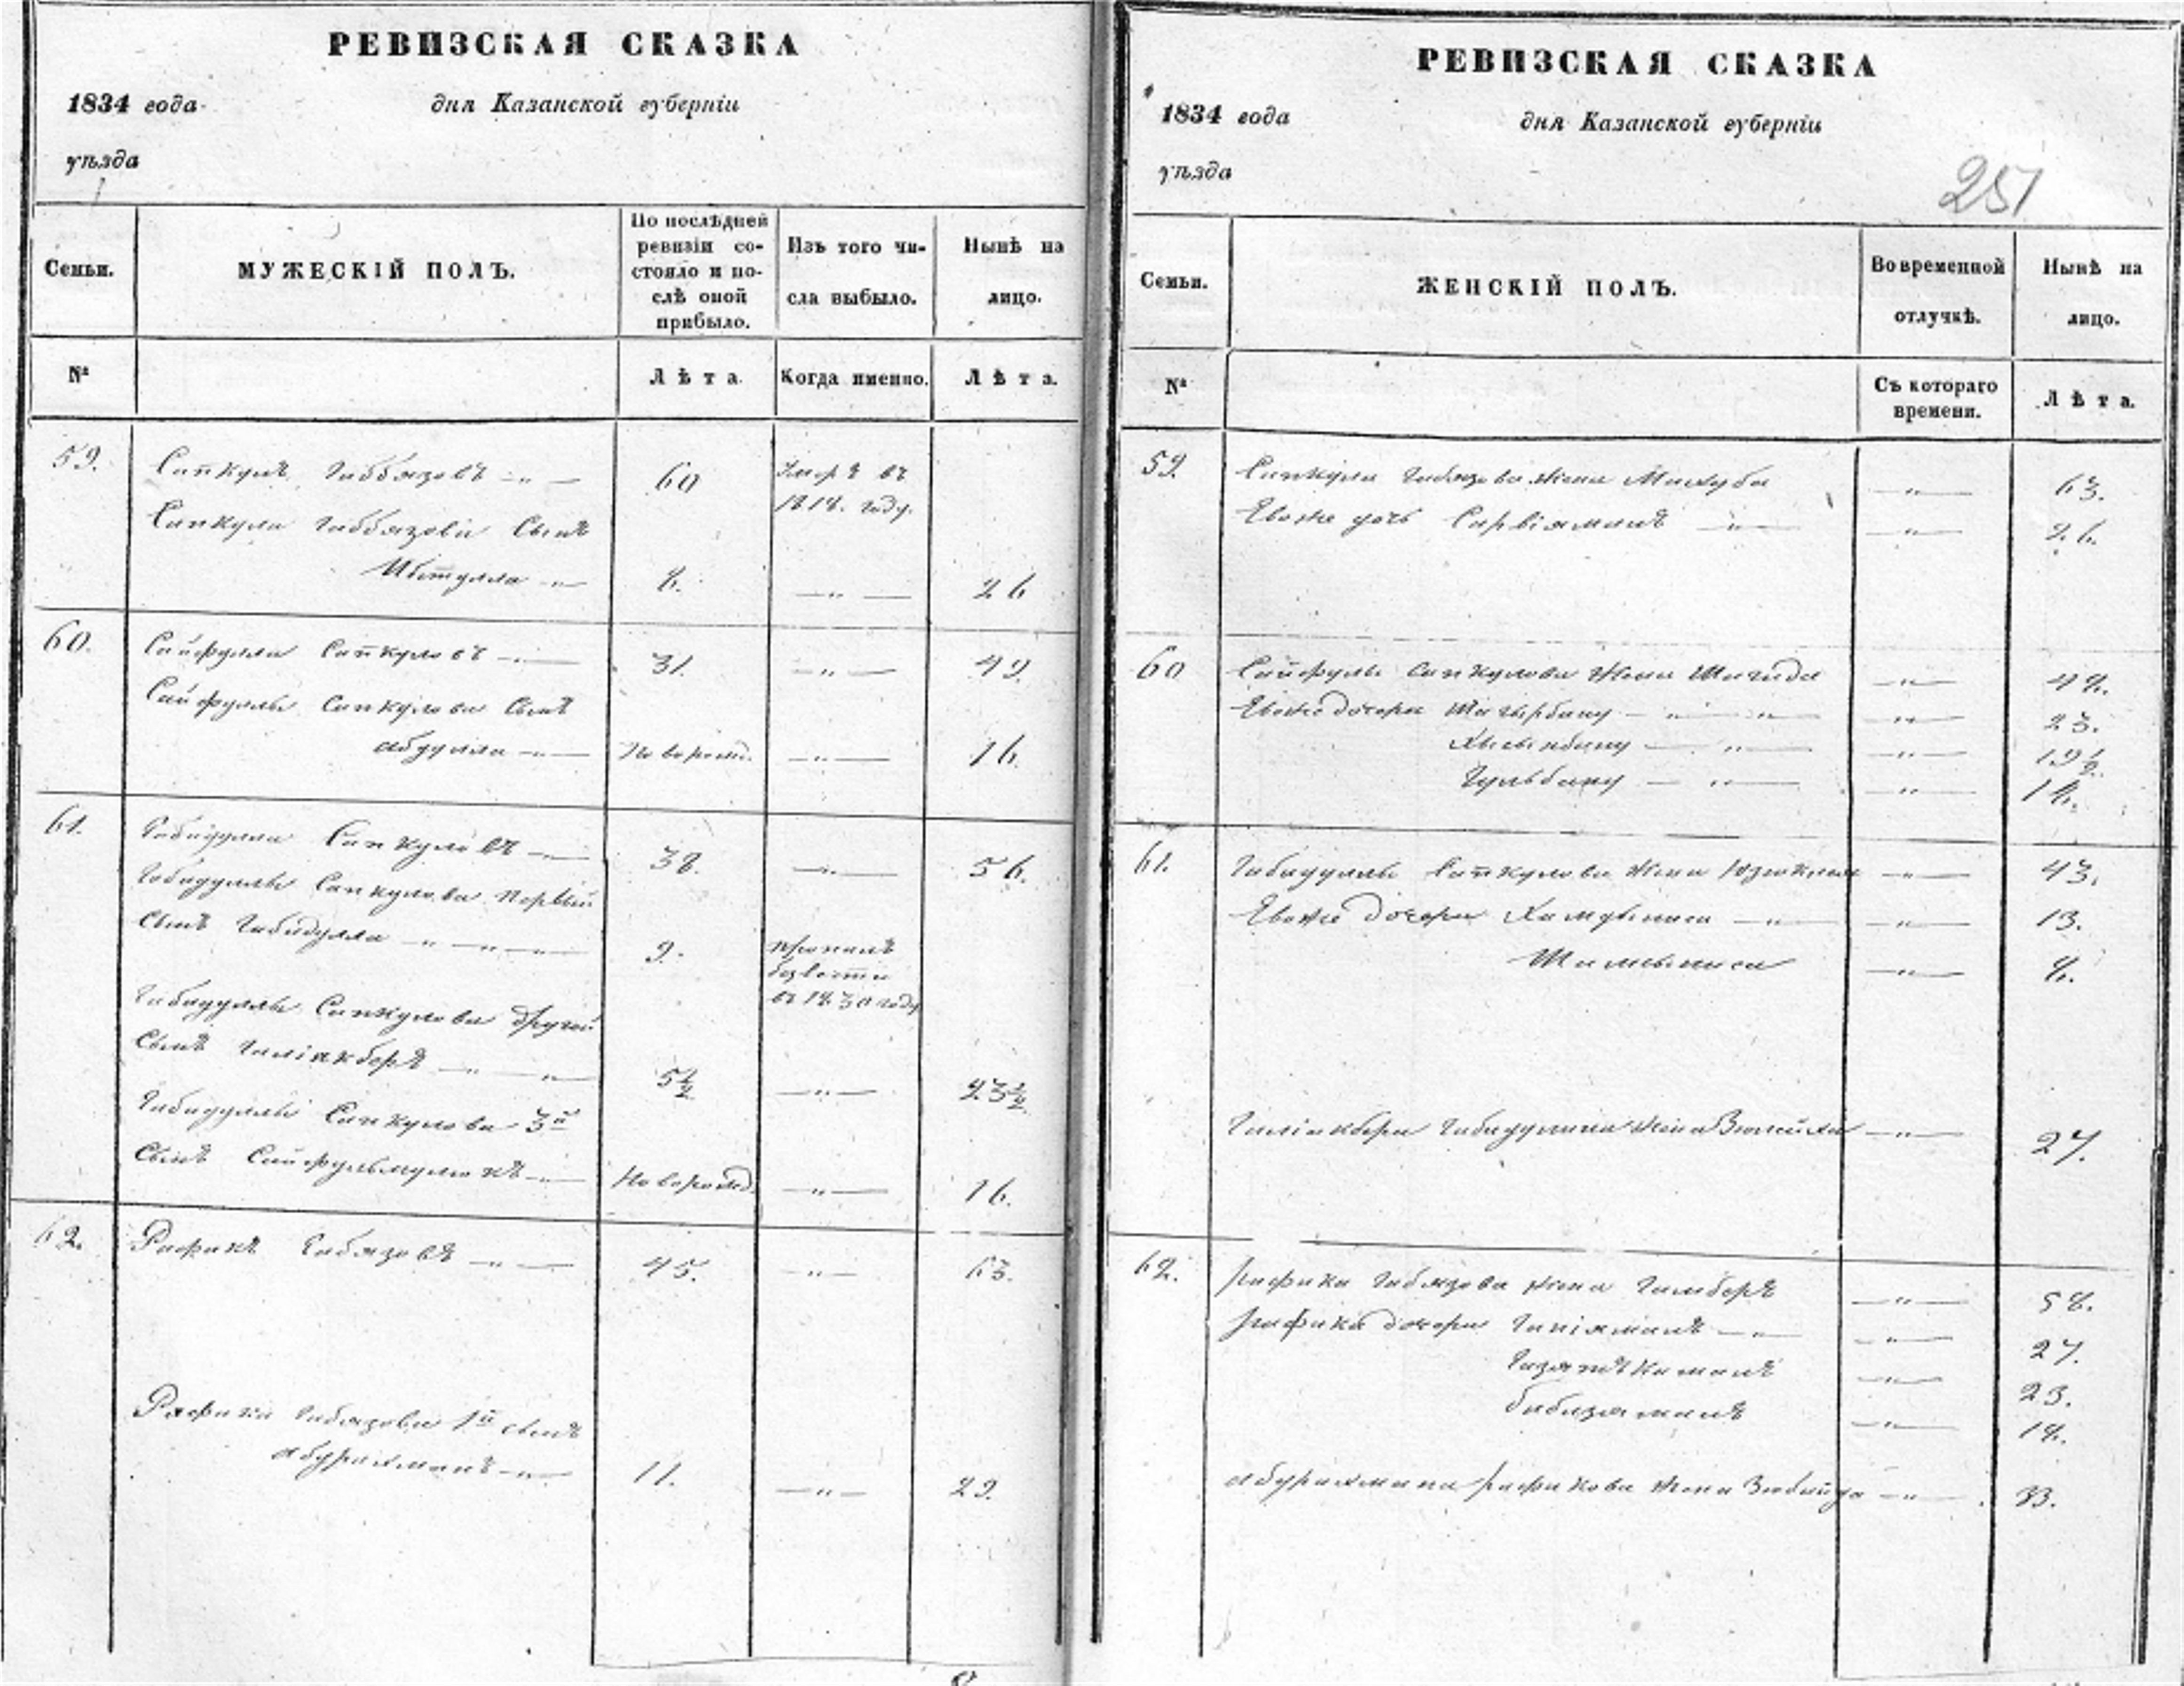 РЕВИЗСКАЯ СКАЗКА
1834 года дня Казанской губерніи
уѣзда
Семьи.
МУЖЕСКІЙ ПОЛЪ.
По послѣдней
ревизіи со-
стояло и по-
слѣ оной
прибыло.
Изъ того чи-
сла выбыло.
Нынѣ на
лицо.
№
Лѣта.
Когда именно.
Лѣта.
59. Сапкулъ Габбязовъ 60 Умеръ въ
1818. году.
Сапкула Габбязова Сынъ
8. 26
60. Сайфулла Сапкуловъ 31. 49.
Сайфуллы Сапкулова Сынъ
Абдулла Новорожд. 16.
61. Габидулла Сапкуловъ 38. 56.
Габидуллы Сапкулова первый
Сынъ 9. пропалъ
безвести
въ 1830 году
Габидуллы Сапкулова другой
Сынъ Галіакберъ 5½ 23½
Габидуллы Сапкулова 3й
Сынъ Сайфульмулюкъ Новорожд. 16.
62. Рафикъ Габязовъ 45. 63.
Рафика Габязова 1й сынъ
Абдрахманъ 11. 29.
РЕВИЗСКАЯ СКАЗКА
1834 года дня Казанской губерніи
уѣзда
251
Семьи.
ЖЕНСКІЙ ПОЛЪ.
Во временной
отлучкѣ.
Нынѣ на
лицо.
№
Съ котораго
времени.
Лѣта.
59. Сапкула Габязова жена 63.
Евоже дочь 26.
60 Сайфуллы Сапкулова жена 48.
Евоже дочери 23.
19½
Гульбану 18.
61. Габидуллы Сапкулова жена 43.
Евоже дочери 13.
8.
Галіакбера Габидулина жена Зюлейха 27.
62. Рафика Габязова жена 58.
Рафика дочери 27.
23.
18.
Абдрахмана Рафикова жена Зюбайда 33.